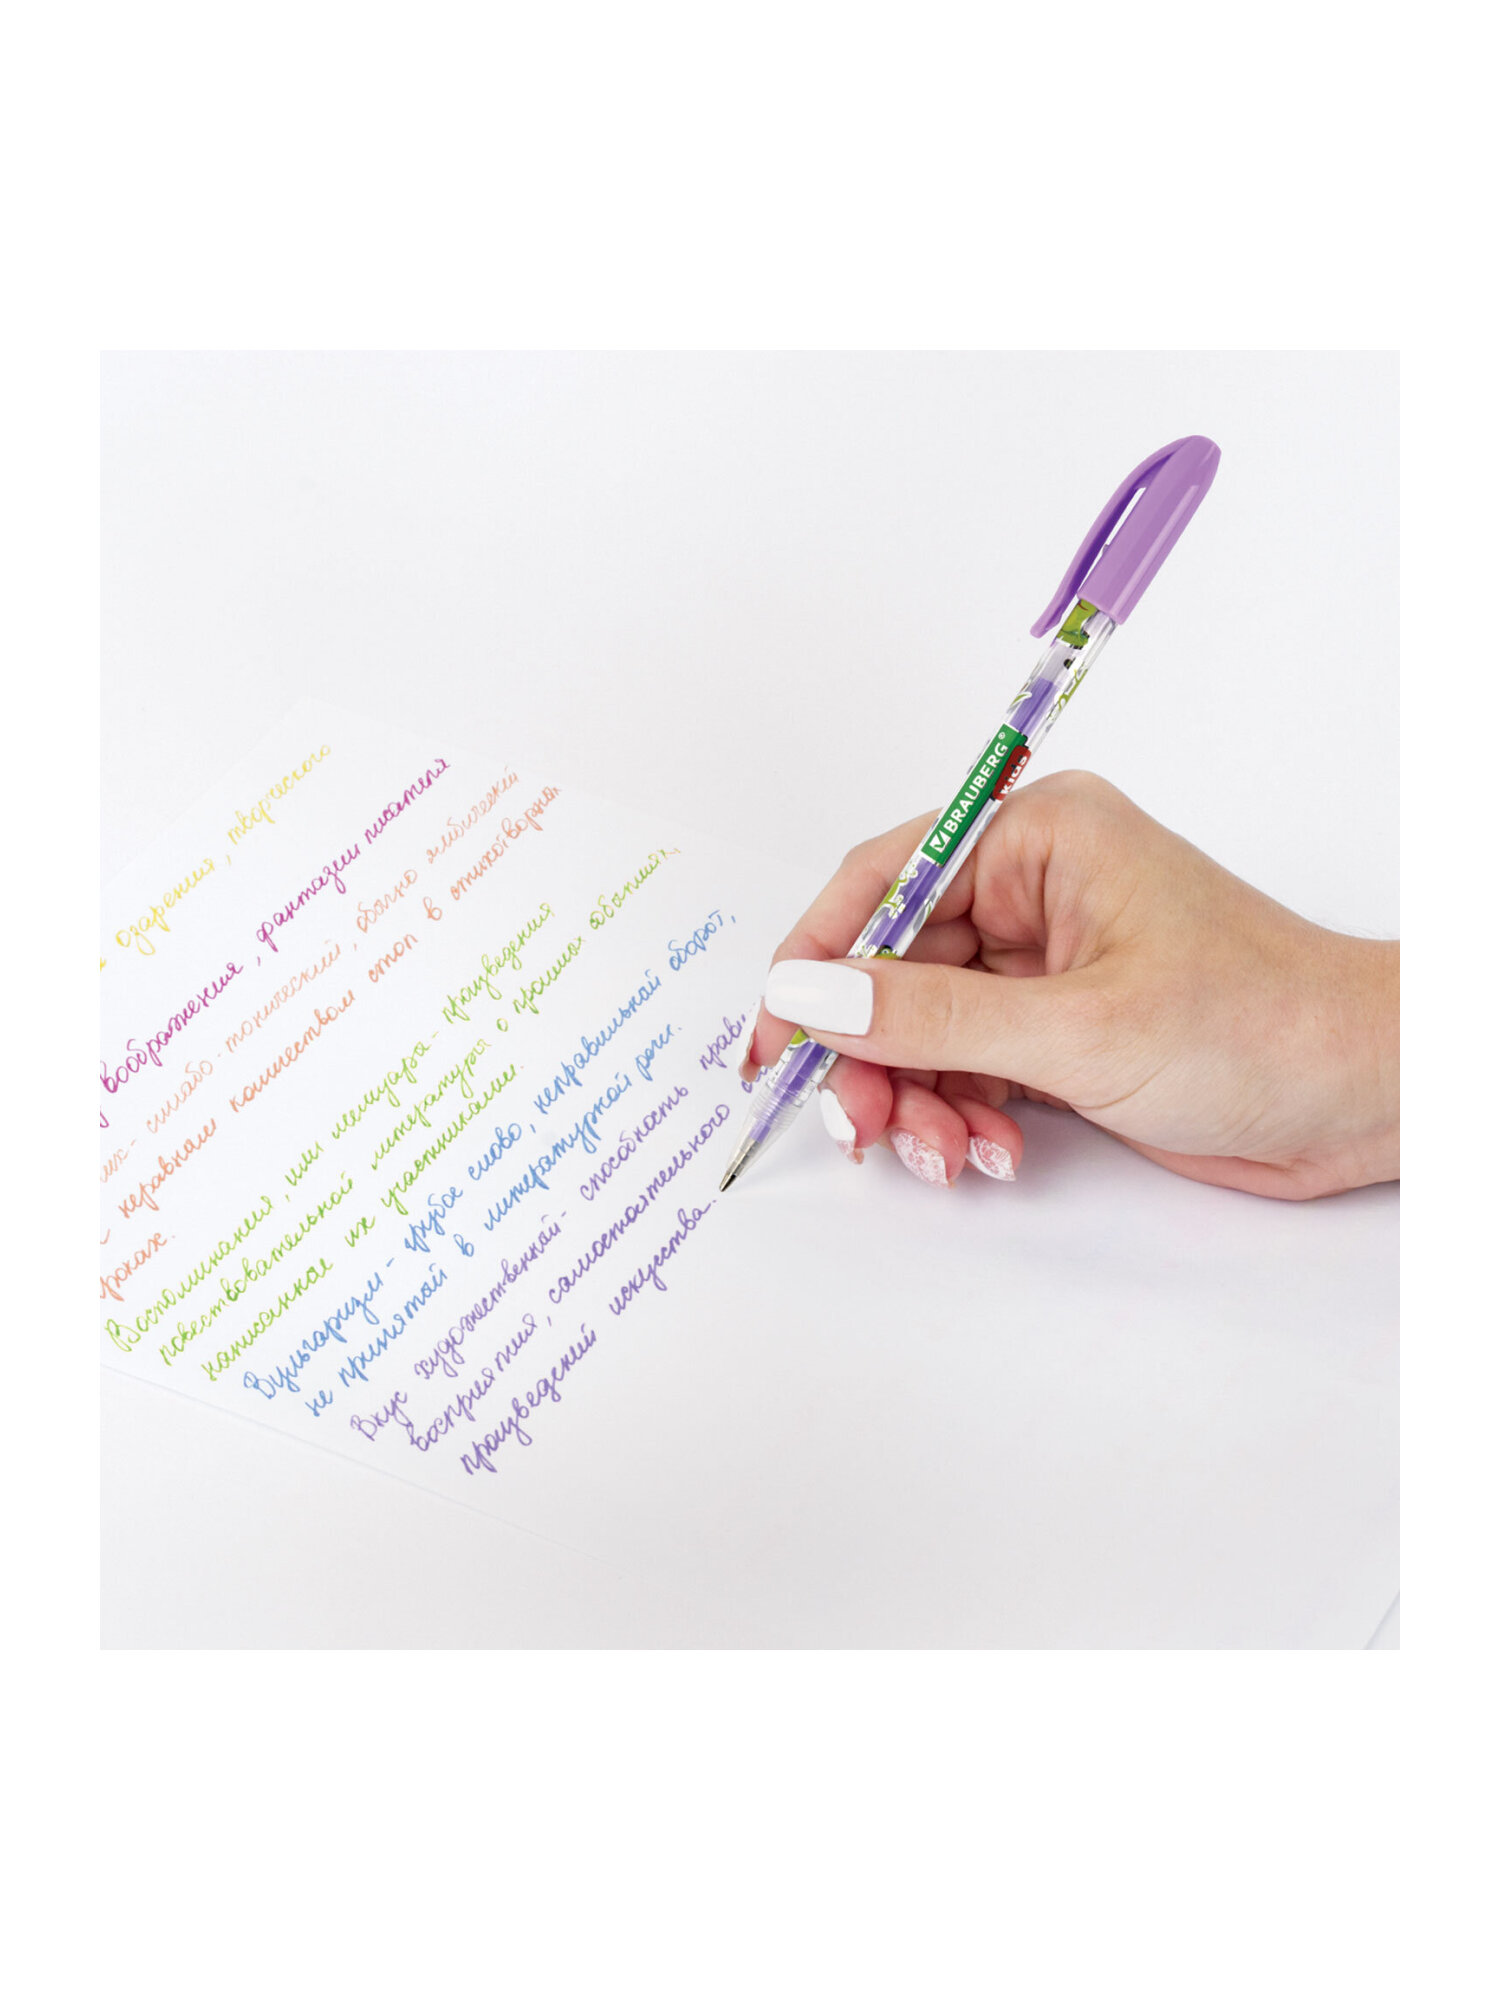 озарения, творческого
воображения, фантазии писателя
силлабо-тонический, обычно ямбический
с неравным количеством стоп в стихотворных
строках.
Воспоминания, или мемуары - произведения
повествовательной литературы о прошлых событиях,
написанные их участниками.
Вульгаризм - грубое слово, неправильный оборот,
не принятый в литературной речи.
Вкус художественный - способность прави
восприятия, самостоятельного
произведений искусства.
BRAUBERG®
KIDS